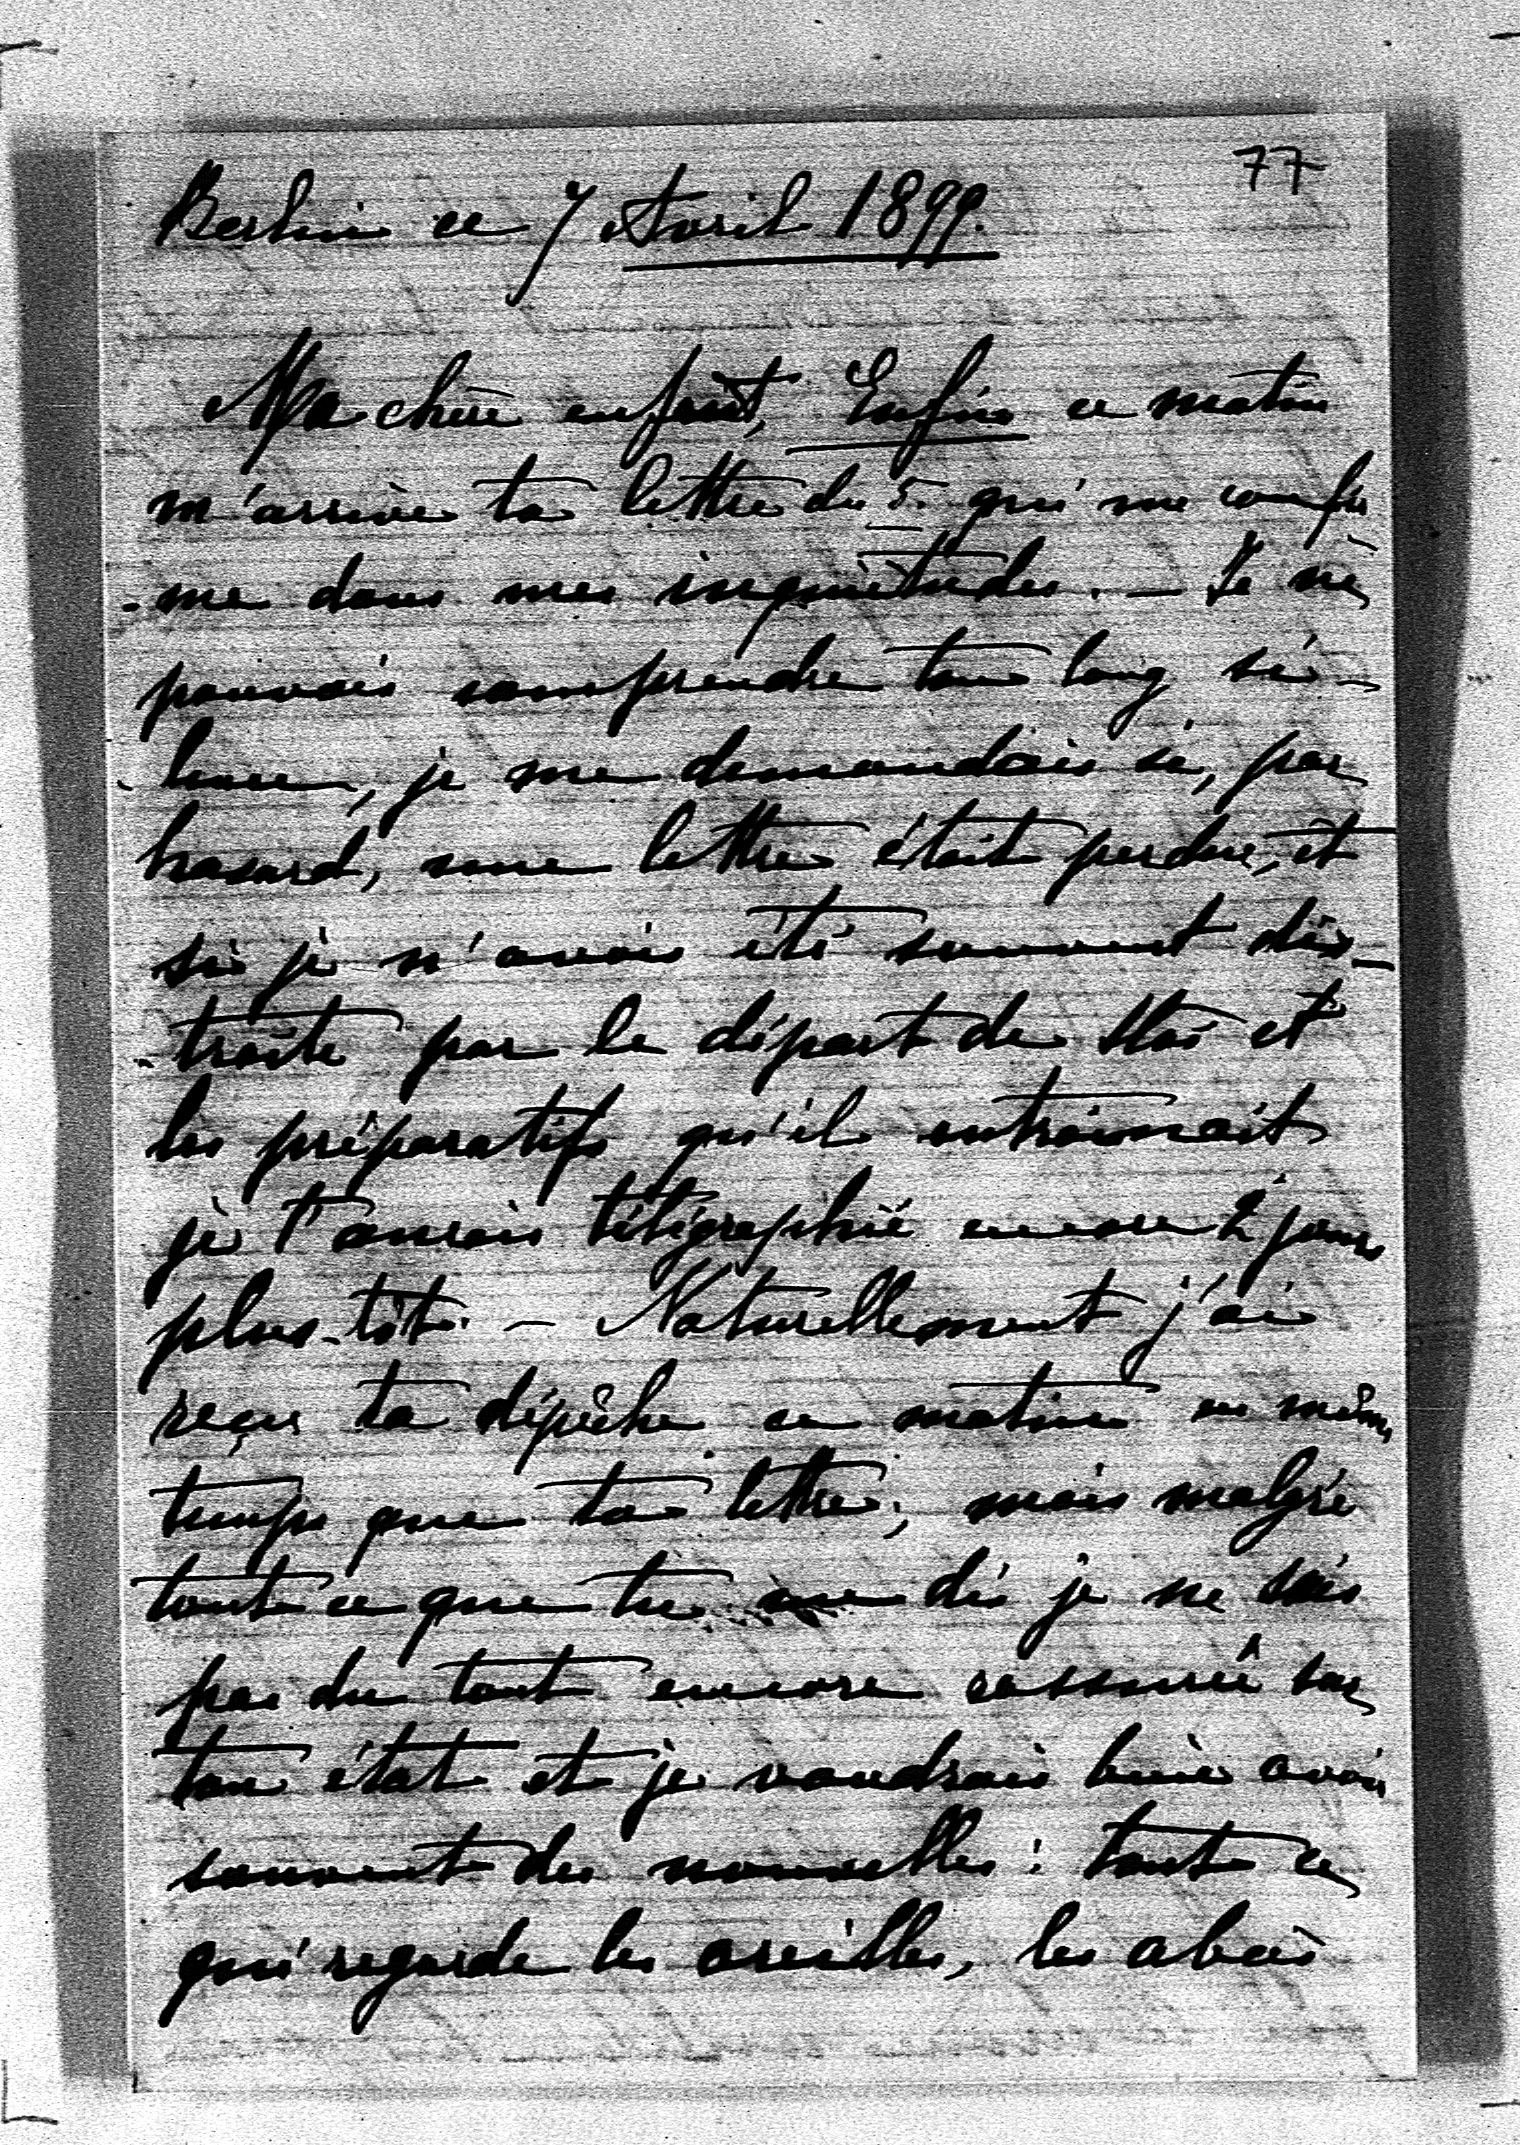 77
Berlin ce 7 Avril 1899.
Ma chère enfant, Enfin ce matin
m'arrive ta lettre du 5. qui me confir
-me dans mes inquiètudes. — Je ne
pouvais comprendre ton long si-
-lence, je me demandais si, par
hasard, une lettre était perdue, et
si je n'avais été souvent dis-
-traite par le départ de Stas et
les préparatifs qu'il entrainait
je t'aurais télégraphié encore 2 jours
plus-tôt. — Naturellement j'ai
reçu ta dépêche ce matin en même
temps que ta lettre; mais malgré
tout ce que tu me dis je ne suis
pas du tout encore rassurée sur
ton état et je voudrais bien avoir
souvent des nouvelles: tout ce
qui regarde les oreilles, les abcès